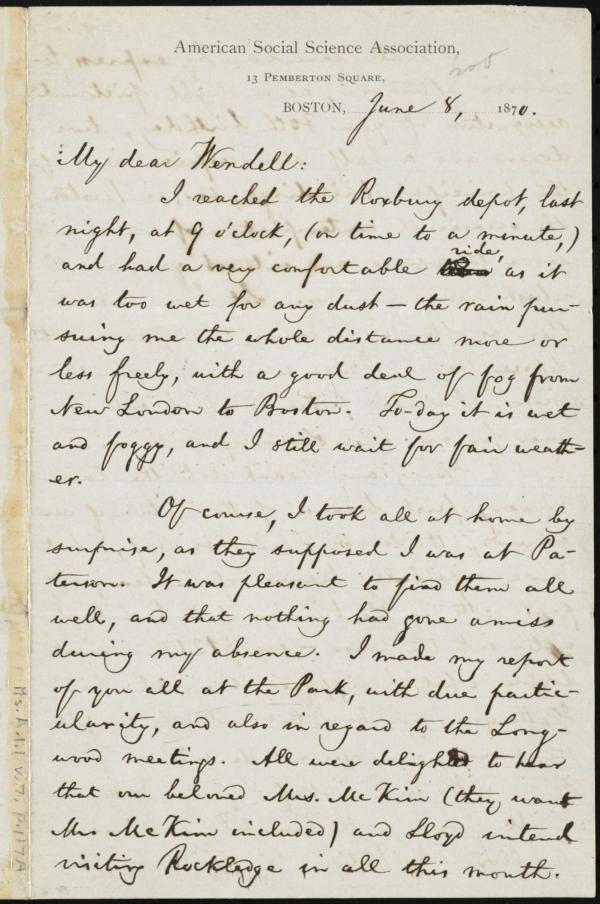 American Social Science Association,
13 PEMBERTON SQUARE,
205
BOSTON, June 8, 1870.
My dear Wendell:
I reached the Roxbury depot, last
night, at 9 o'clock, (on time to a minute,)
and had a very comfortable ride, as it
was too wet for any dust — the rain pur-
suing me the whole distance more or
less freely, with a good deal of fog from
New London to Boston. To-day it is wet
and foggy, and I still wait for fair weath-
er.
Of course, I took all at home by
surprise, as they supposed I was at Pa-
terson. It was pleasant to find them all
well, and that nothing had gone amiss
during my absence. I made my report
of you all at the Park, with due partic-
ularity, and also in regard to the Long-
wood meetings. All were delighted to hear
that our beloved Mrs. McKim (they want
Mr McKim included) and Lloyd intend
visiting Rockledge in all this month.
Ms. A. 1. 1 v. 7, p. 117A